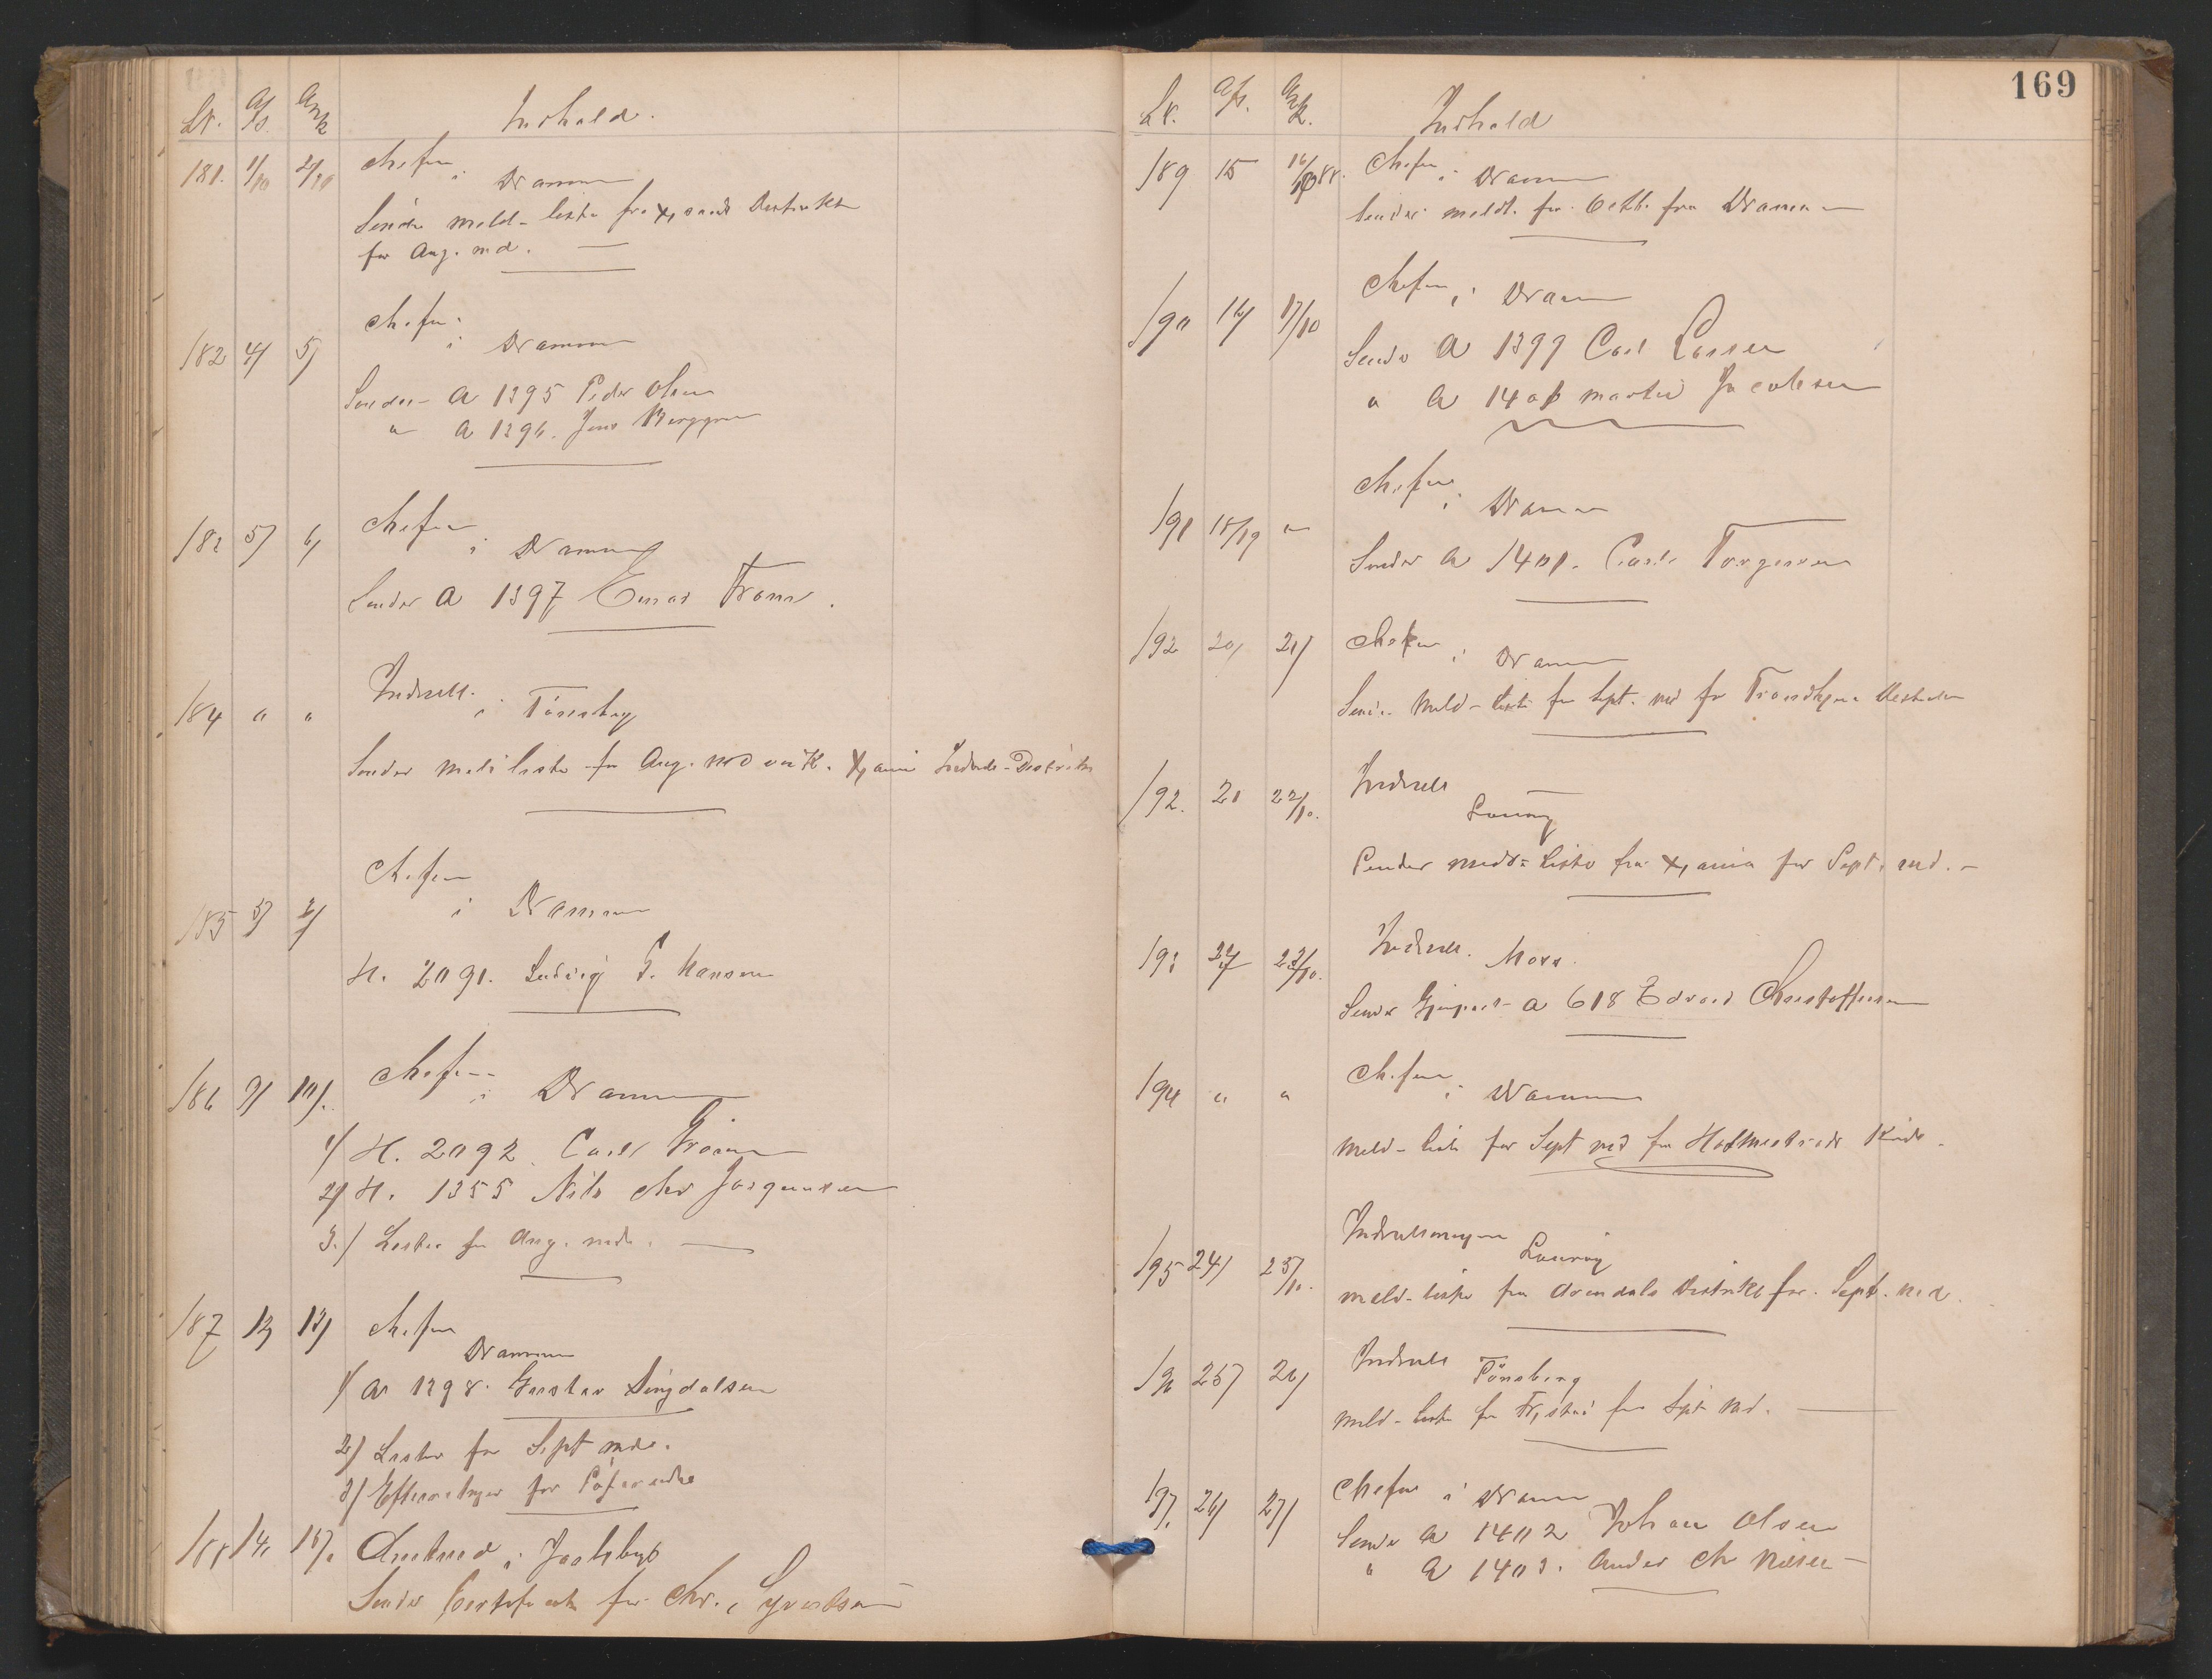 Lr. Afs. Ank. Indhold.
181. 1/10 2/10 Chefen i Drammen
Sender meld-liste fra Xsands Distrikt
for Aug. md.
182 4/ 5/ Chefen i Drammen
Sender A 1395 Peder Olsen
" A 1396. Jens Berggren
183 5/ 6/ Chefen i Drammen
Sender A 1397 Einar Frans.
184 " " Indrull. i Tönsberg
Sender meld liste for Aug. md Xania Distrikt
185 5/ 6/ Chefen i Drammen
H. 2091. Ludvig T. Hansen
186 9/ 10/. Chefen i Drammen
1/ H. 2092. Carl
2/ H. 1355 Nils Chr Jørgensen
3.) Lister for Aug. md.
187 12/ 13/ Chefen Drammen
1/ A 1398. Gustav Lingdalsen
2/ Lister for Sept md.
3/ Efterretninger for Søfarende
188 14/ 15/. Amtmd i Jarlsberg
Sender Certifikat for Chr. Syvertsen
169
Lr. Afs. Ank. Indhold
189 15 16/10 88. Chefen i Drammen
Sender meldl. for Octb. fra Drammen
190 16/ 17/10 Chefen i Dramm
Sender A 1399 Carl Larsen
" A 1400 Martin Jacobsen
191 18/19 " Chefen i Drammen
Sender A 1401. Carl Torgersen
192 20/ 21/ Chefen i Drammen
Sender Meld-liste for Sept. md for Trondhjem
192. 21 22/10. Indrull Laurvig
Sender meld-liste fra Xania for Sept. md.
193 22/ 23/10. Indrull. Moss.
Sender A 618 Edvard Christoffersen
194 " " Chefen i Drammen
Meld-liste for Sept md fra
195 24/ 25/10. Indrulleringen Laurvig
meld-liste fra Arendals Distrikt for Sept. md.
196 25/ 26/ Indrull Tönsberg
meld-liste fra Frstad for Sept md.
197. 26/ 27/ Chefen i Dramm
Sender A 1402 Johan Olsen
" A 1403. Anders Chr Nilsen